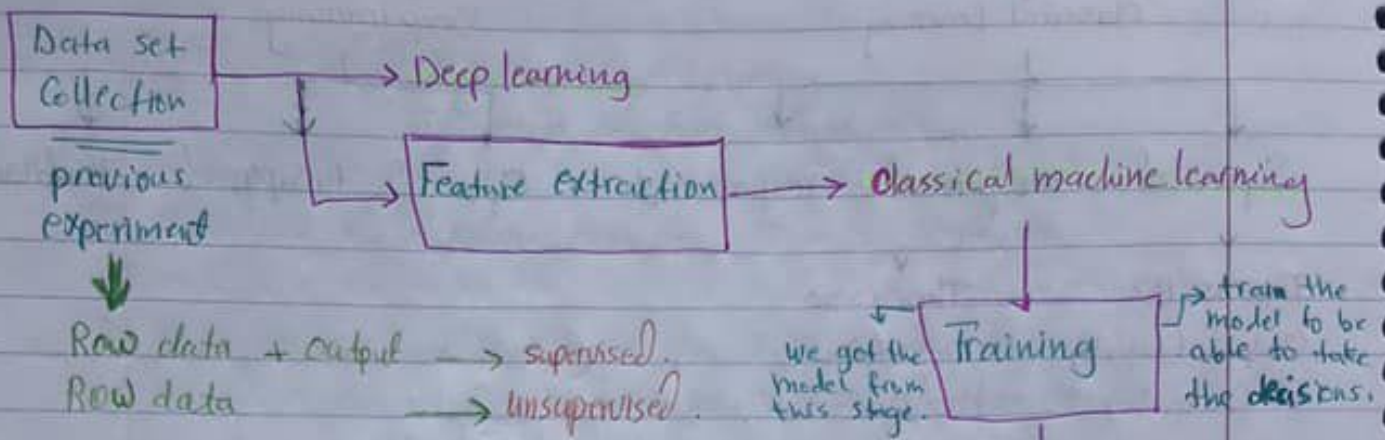 Data set
Collection
previous
experiment
Deep learning
Feature extraction
classical machine learning
Raw data + output → supervised.
Raw data → unsupervised.
we got the
model from
this stage.
Training
train the
model to be
able to take
the decisions.